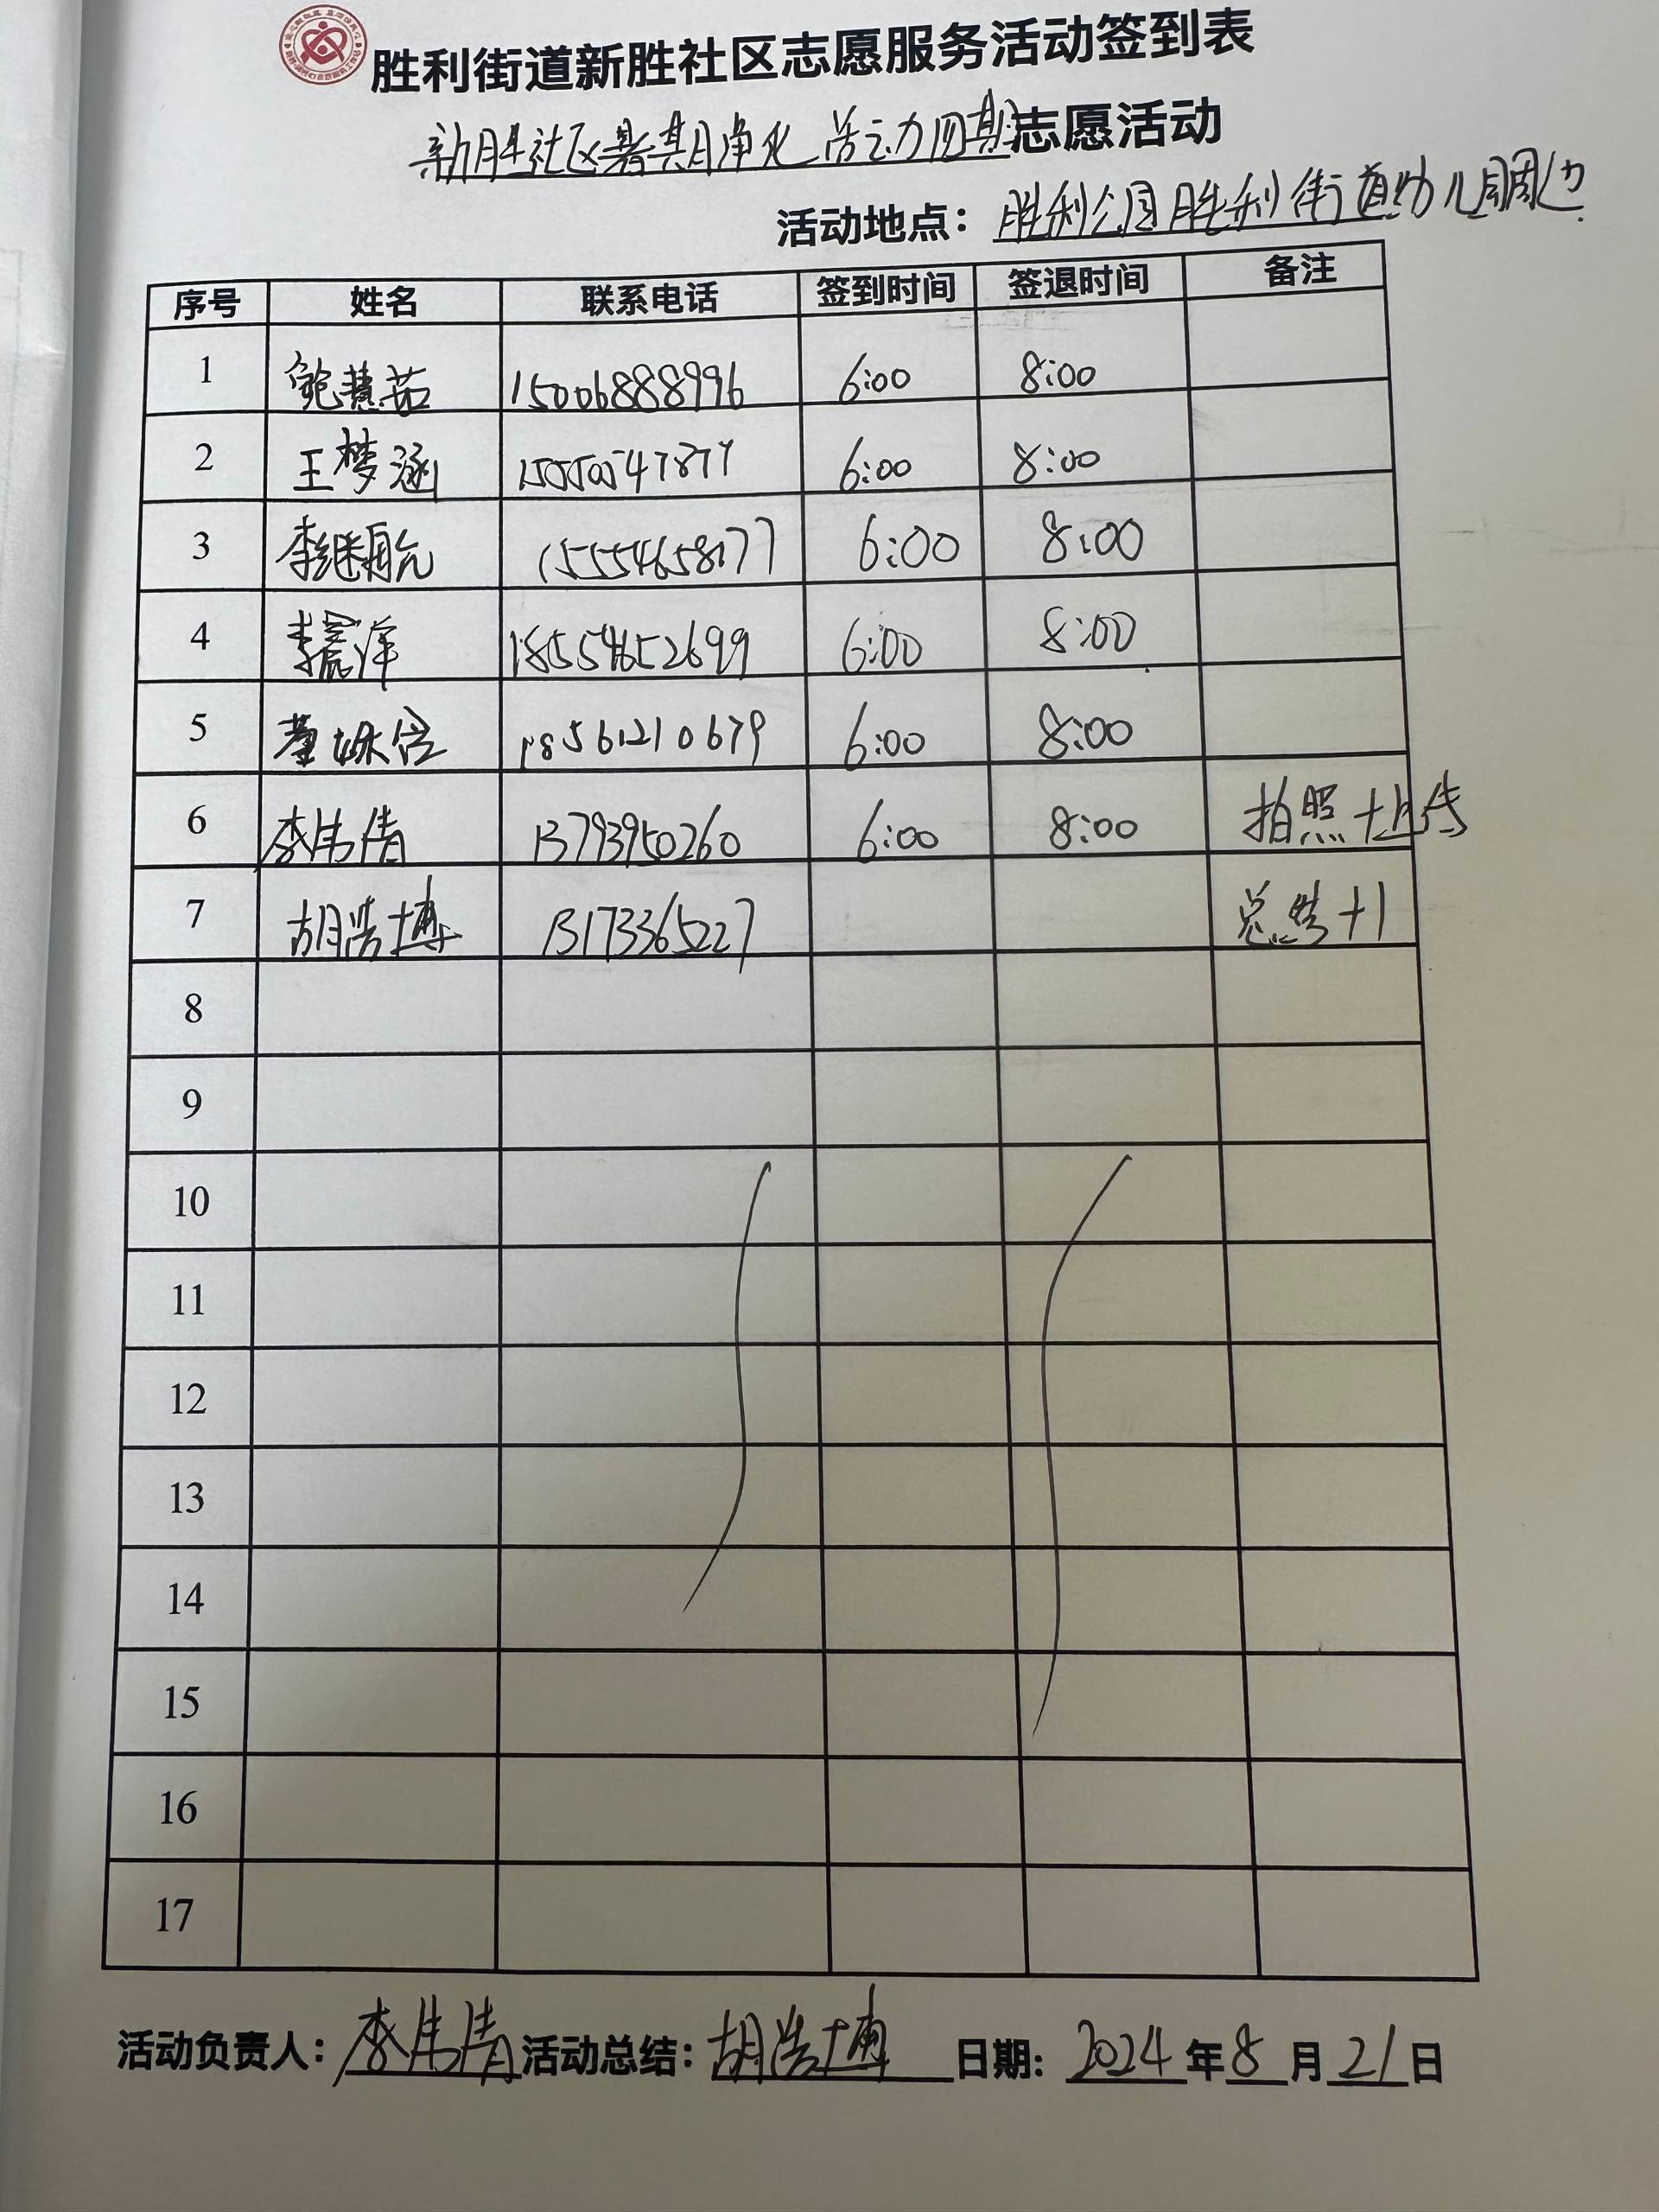 胜利街道新胜社区志愿服务活动签到表
新胜社区暑期净化活动四期志愿活动
活动地点：胜利公园胜利街道幼儿园周边
序号 姓名 联系电话 签到时间 签退时间 备注
1 鲍慧茹 15006888996 6:00 8:00
2 王梦涵 6:00 8:00
3 李继航 15554658177 6:00 8:00
4 李宸洋 18554652699 6:00 8:00
5 董姝含 18561210679 6:00 8:00
6 李伟倩 13793950260 6:00 8:00 拍照+上传
7 胡浩博 13173365227 总结+1
8
9
10
11
12
13
14
15
16
17
活动负责人：李伟倩 活动总结：胡浩博 日期：2024年8月21日